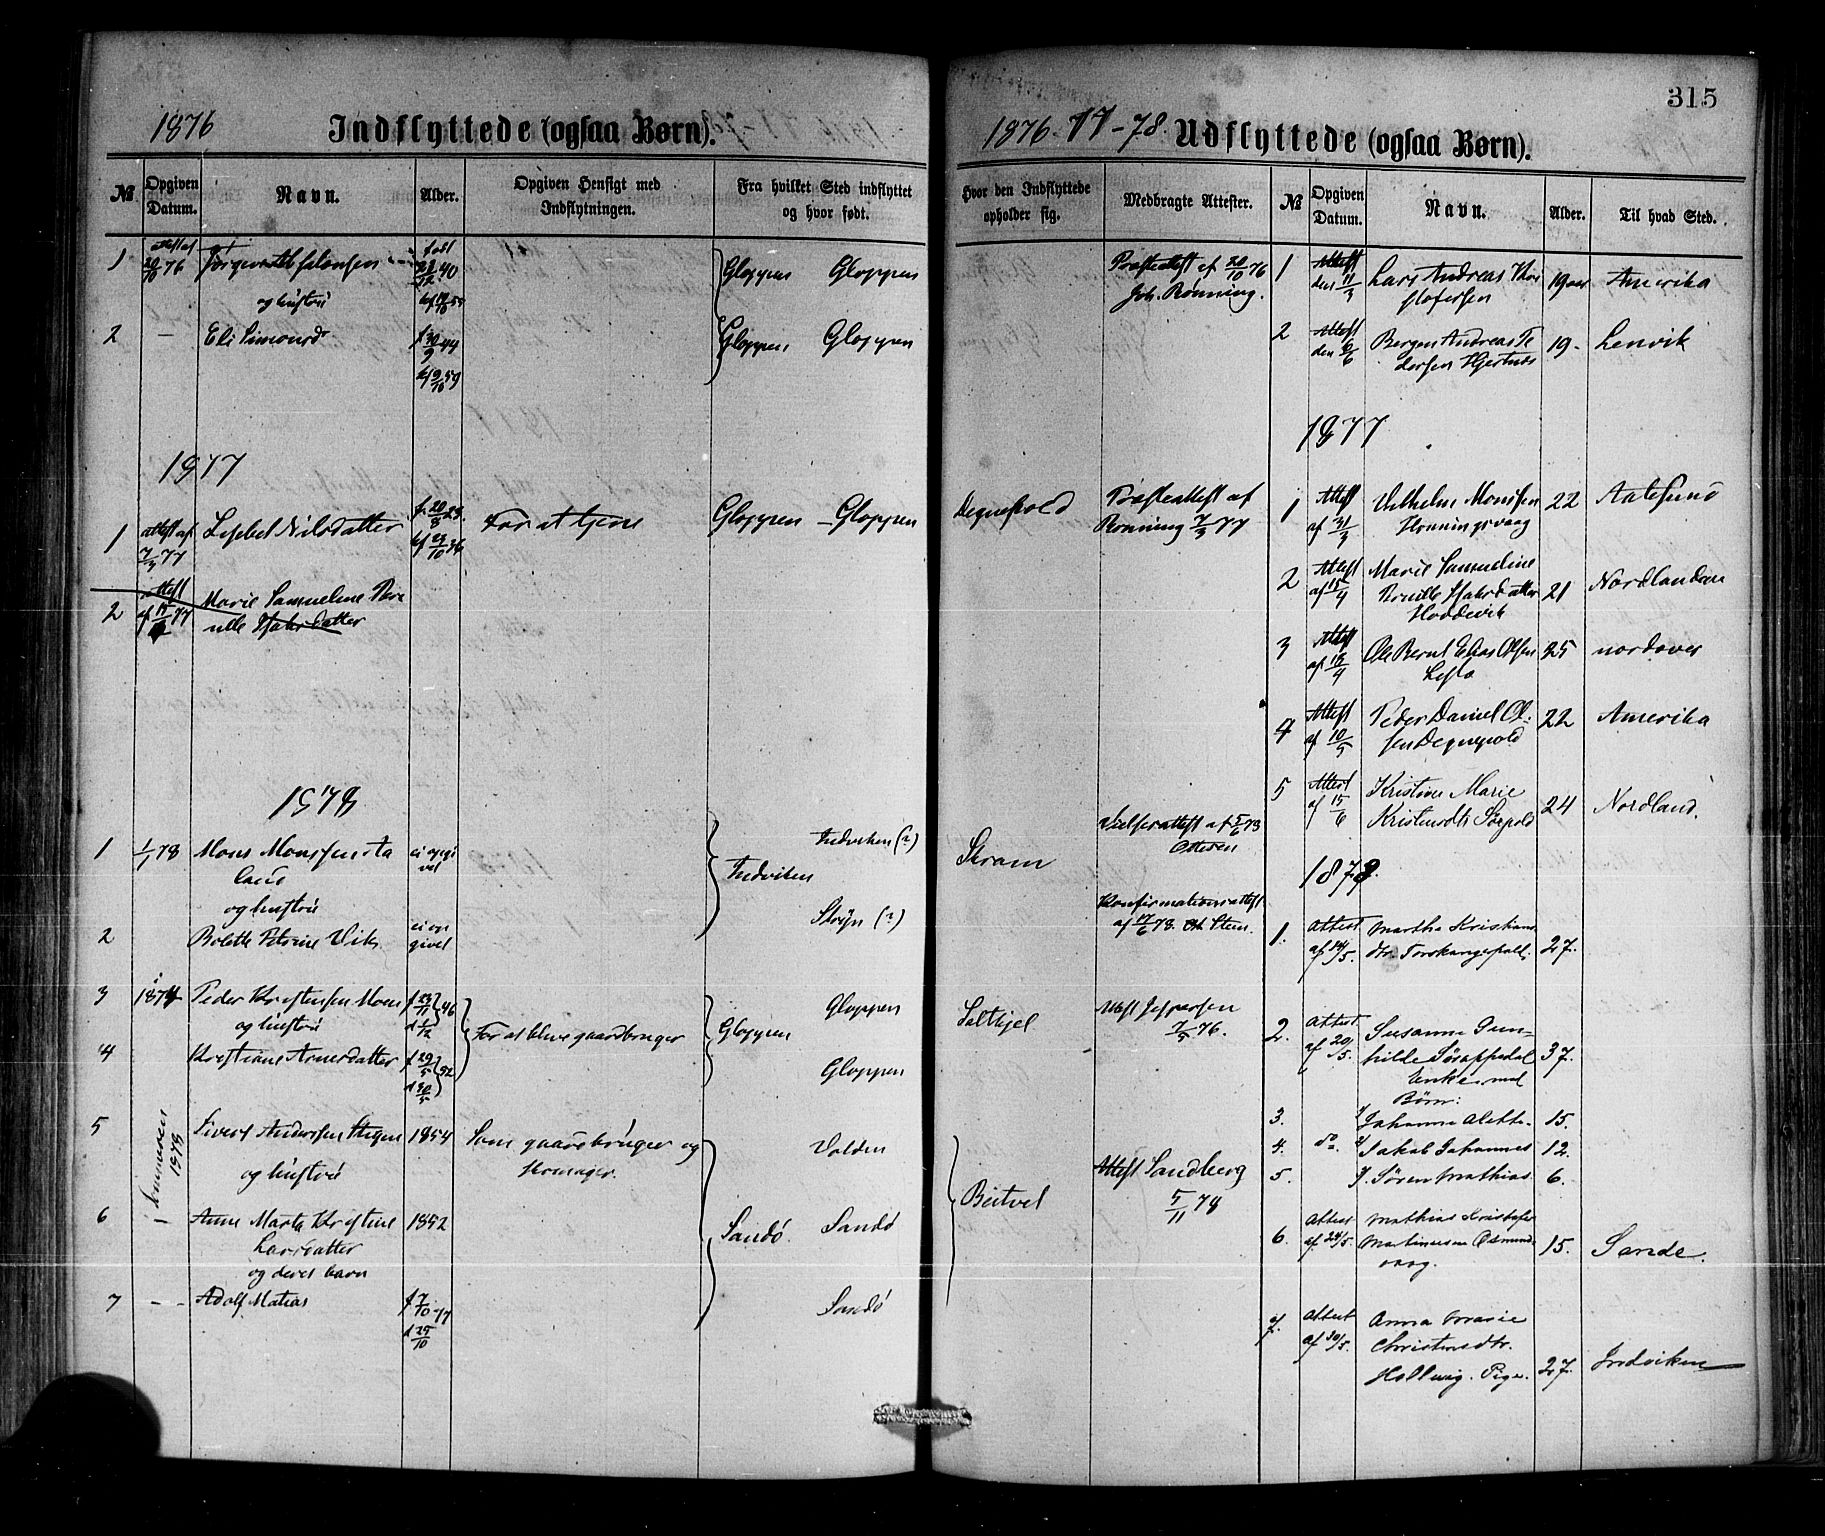 315
1876
Indflyttede (ogsaa Børn).
1876-77-78.
Udflyttede (ogsaa Børn).
№
Opgiven Datum.
Navn.
Alder.
Opgiven Hensigt med Indflytningen.
Fra hvilket Sted indflyttet og hvor født.
Hvor den Indflyttede opholder sig.
Medbragte Attester.
№
Opgiven Datum.
Navn.
Alder.
Til hvad Sted.
1
attest af 20/10 76
og hustru
Gloppen Gloppen
Præsteattest af 20/10 76
Joh. Rønning.
2
–
Eli Simonsdr
f 30/9 44
Gloppen Gloppen
1877
1
attest af 7/3 77
Lisbet Nilsdatter
For at tjene
Gloppen – Gloppen
Degnepold
Præsteattest af
Rønning 7/3 77
2
attest
Marie Samueline Per
nille Isaksdatter
1878
1
1/1 78
Mons Monssen Aa
land
og hustru
ei opgi
vet
Indviken
Indviken (?)
Skram
Vielsesattest af 5/6 73
Ottesen
2
Bolette Petrine Vik
ei op
givet
Stryn (?)
Konfirmationsattest
af 17/6 78. Stem.
3
1874
Peder Kristensen Moen
og hustru
f 23/11 46
d 1/12
For at blive gaardbruger
Gloppen
Gloppen
Salthjel
Attest Jespersen
7/5 76.
4
Kristiane Arnesdatter
f 29/5 52
d 30/5
Gloppen
5
Sommeren 1878
Sivert Anderssen Stigen
og hustru
1854
Som gaardbruger og
skomager.
Volden
Beitvet
Attest Sandberg
5/11 78
6
Anne Marta Kristine
Larsdatter
og deres barn
1852
Sandø.
Sandø
7
– –
Adolf Matias
f 7/10 77
d 25/10
Sandø
1
Attest
den 11/3
Lars Andreas Kris
tofersen
19 aar
Amerika
2
Attest
den
Berger Andreas Pe
dersen Hjertnes
19.
Lenvik
1877
1
Attest
af 31/3
Vilhelm Monssen
Honningsvaag
22
Aalesund
2
Attest
af 15/4
Marie Samueline
Pernille Isaksdatter
Hoddevik
21
Nordlandene
3
Attest
af 18/4
Ole Bernt Elias Olsen
Lesto
25
nordover
4
Attest
af 10/5
Peder Daniel Ol-
sen Degnepold
22
Amerika
5
Attest
af 15/6
Kristine Marie
Kristensdtr Sørpold
24
Nordland.
1878
1.
Attest
af 14/5.
Martha Kristians
dtr. Torskangerpoll.
27.
2.
Attest
af 20/5.
Susanne Gun-
hilde Sørappedal
Enke med
Børn:
37.
3.
Johanne Alette.
15.
4.
do.
Jakob Johannes
12.
5.
Søren Mathias
6.
6.
Attest
af 24/5.
Mathias Kristofer
Martinussen Osmunds
vaag.
15.
Sande.
7.
Attest
af 30/5.
Anna Marie
Christensdtr.
Hollevig. Pige.
27.
Indviken